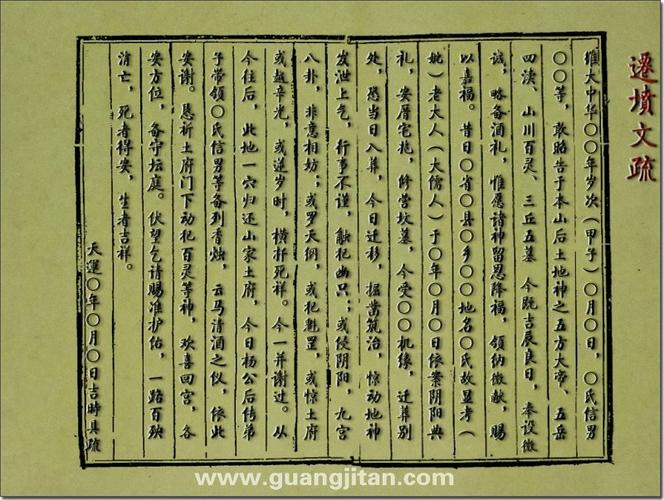 遷墳文疏
维大中华〇〇年岁次(甲子)〇月〇日,〇氏信男
〇〇等,敢昭告于本山后土地神之五方大帝、五岳
四渎、山川百灵、三丘五墓 今既吉晨良日,奉设微
诚,略备酒礼,惟愿诸神留恩降福,领纳微献,赐
以嘉福。昔日〇省〇县〇乡〇〇地名〇氏故显考(
妣)老大人(大孺人)于〇年〇月〇日依案阴阳典
礼,安厝宅兆,修营坟墓,今受〇〇机缘,迁葬别
处,恐当日入葬,今日迁移,掘凿筑治,惊动地神
发泄上气,行事不谨,触犯幽只;或侵阴阳,九宫
八卦,非意相妨;或罗天纲,或犯魁罡,或惊土府
或越辛光,或逆岁时,横扞死祥。今一并谢过。从
今往后,此地一穴归还山家土府,今日杨公后传弟
子带领〇氏信男等备列香烛,云马清酒之仪,依此
安谢。恳祈土府门下动犯百灵等神,欢喜回宫,各
安方位,备守坛庭。伏望乞请赐准护佑,一路百殃
消亡,死者得安,生者吉祥。
天運〇年〇月〇日吉時具疏
www.guangjitan.com